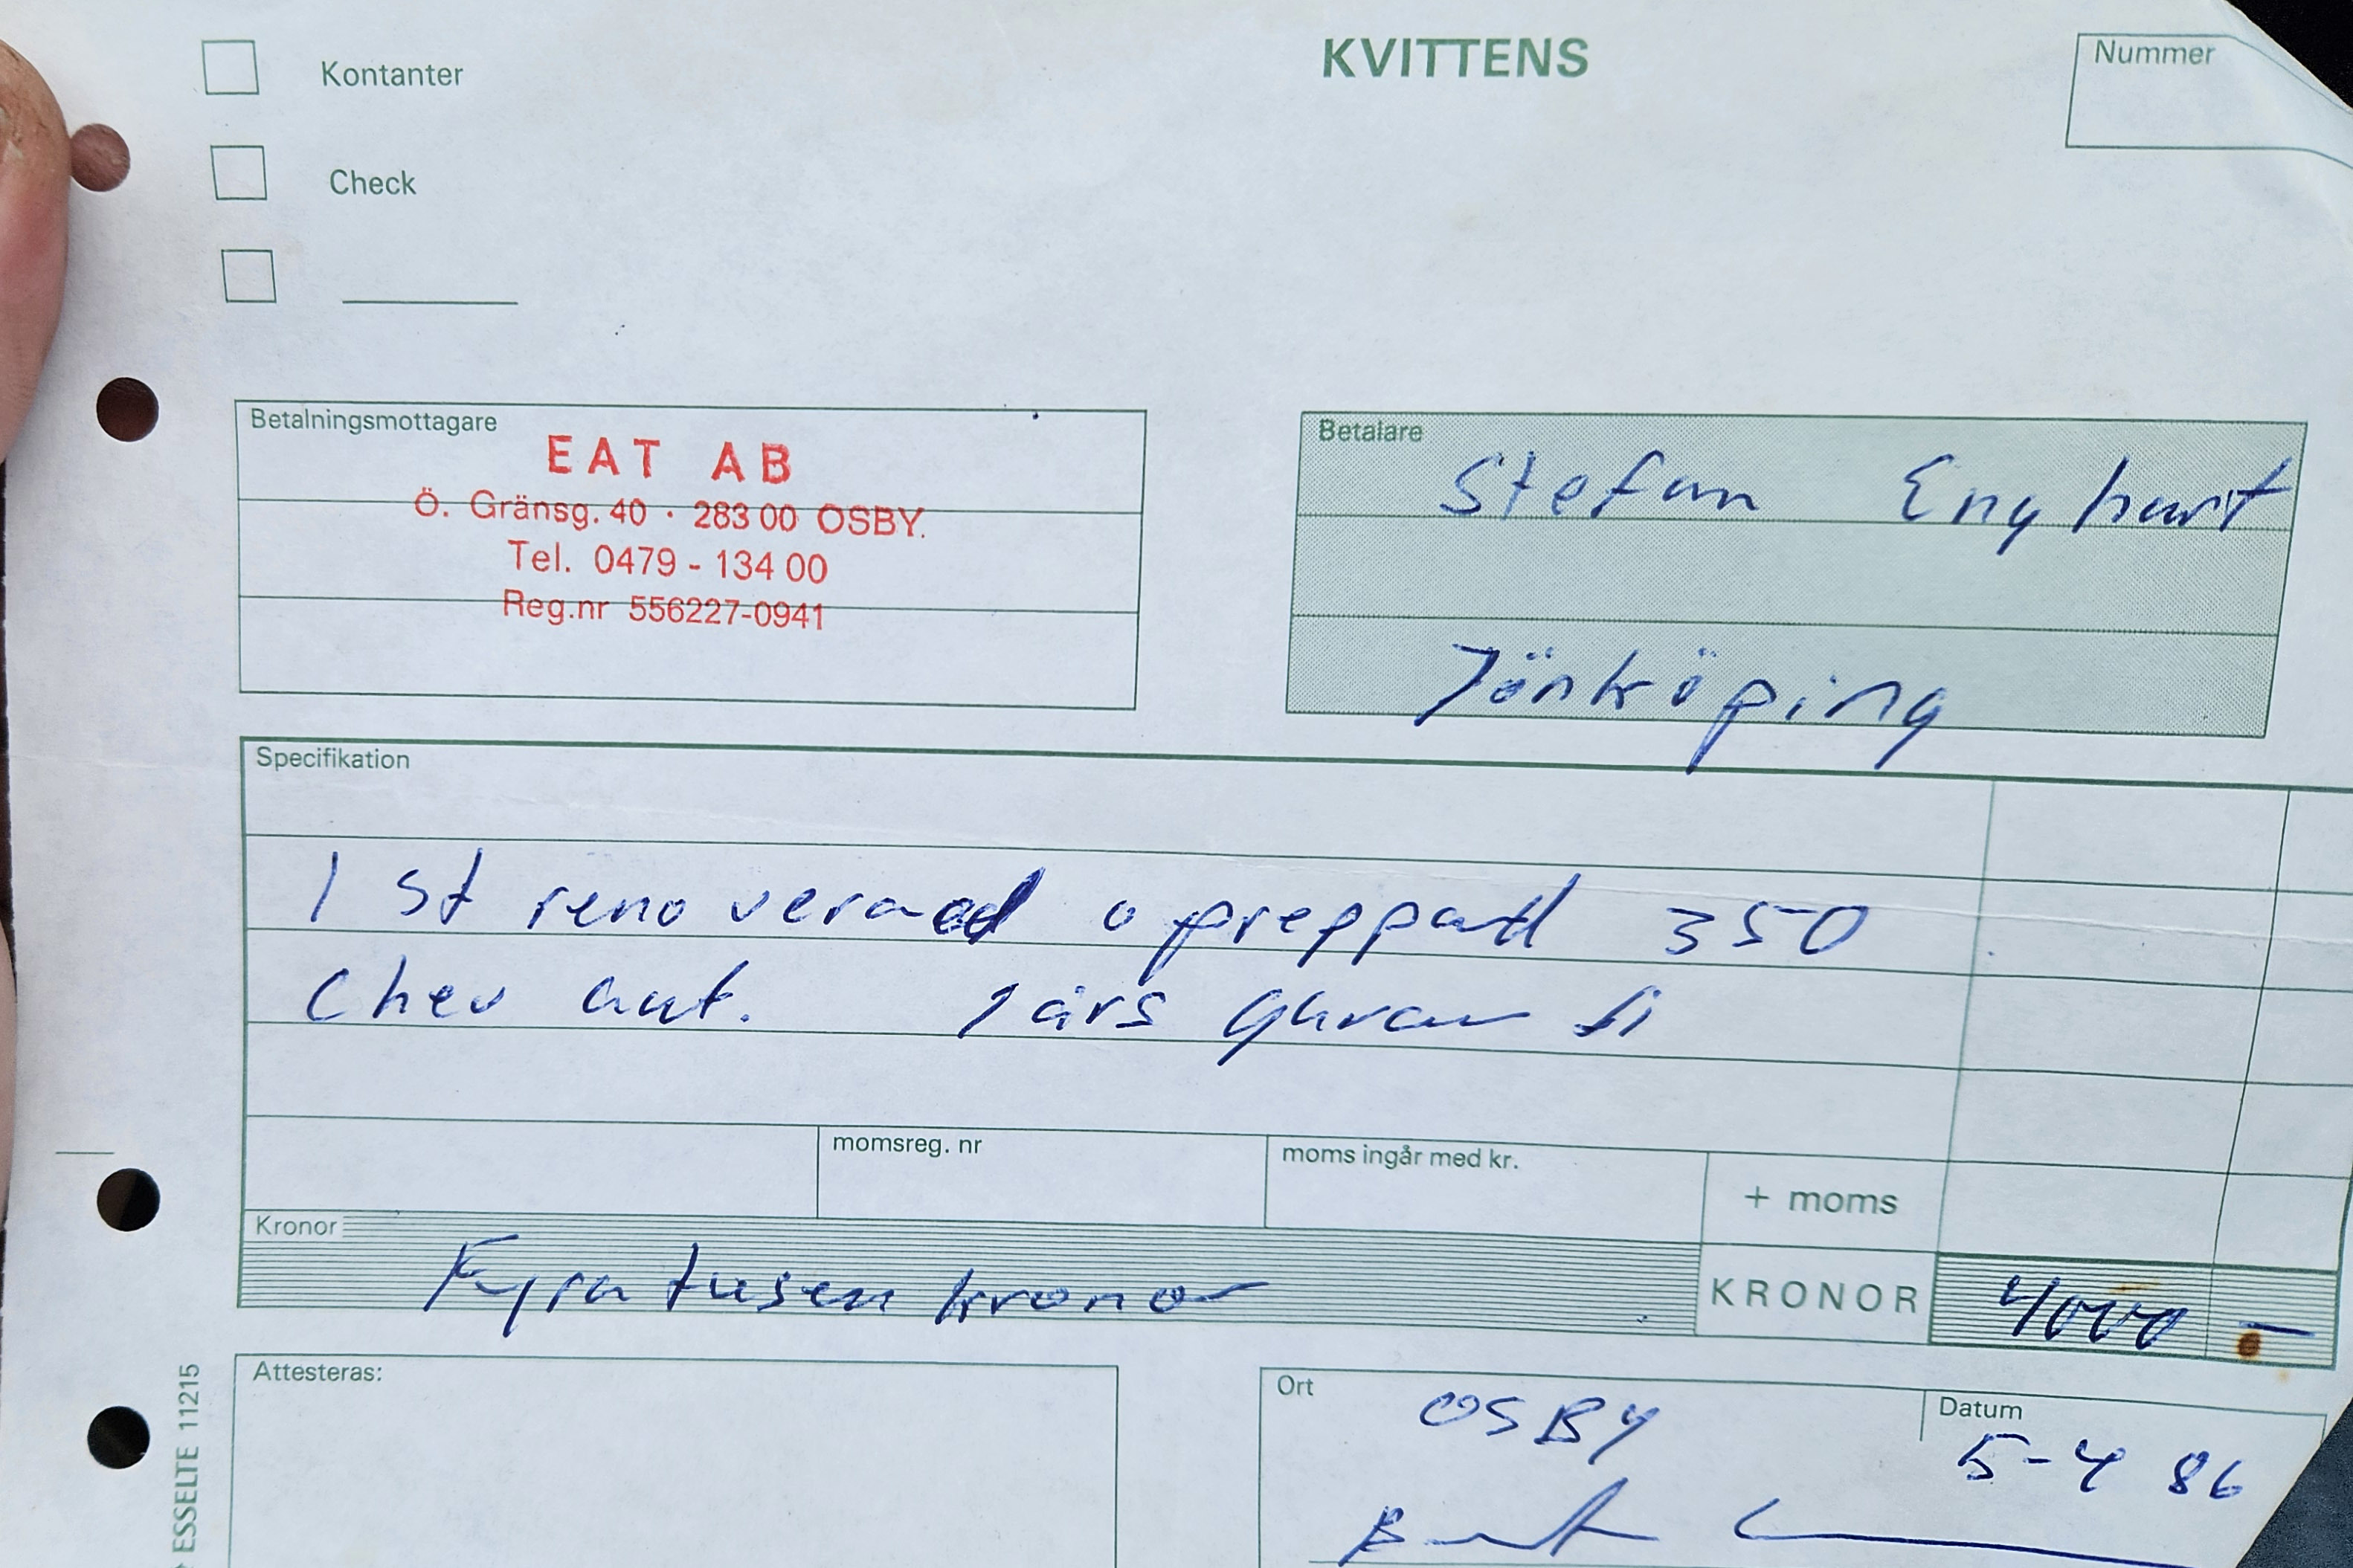 KVITTENS
Nummer
Kontanter
Check
Betalningsmottagare
EAT AB
Ö. Gränsg. 40 · 283 00 OSBY.
Tel. 0479 - 134 00
Reg.nr 556227-0941
Betalare
Stefan Enghart
Jönköping
Specifikation
1 st renoverad o preppad 350
Chev aut. 1 års garanti
momsreg. nr
moms ingår med kr.
+ moms
Kronor
Fyratusen kronor
KRONOR
4000 —
Attesteras:
Ort
OSBY
Datum
5-4 86
ESSELTE 11215